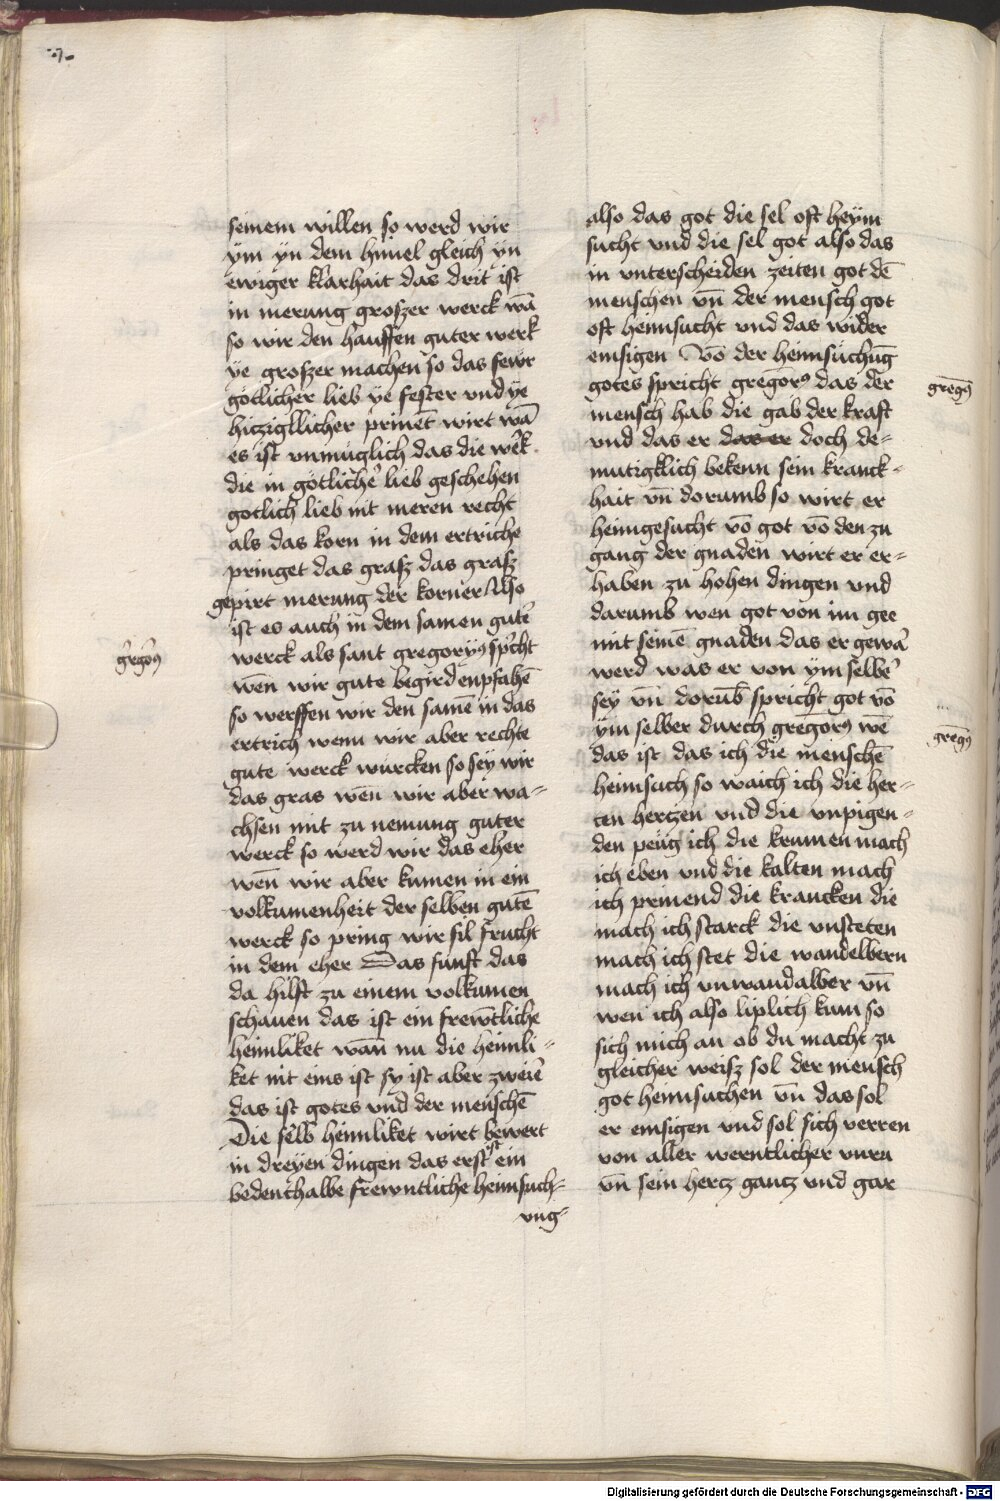 seinem willen so werd wir
ym yn dem himel gleich yn
ewiger klarhait das drit ist
in merung groszer werck wā
so wir den hauffen guter werk
ye groszer machen so das fewr
gotlicher lieb ye fester vnd ye
hiczigllicher prinēt wirt wā
es ist vnmuglich das die wek
die in götliche lieb geschehen
gotlich lieb nit meren recht
als das korn in dem ertriche
pringet das grasz das grasz
gepirt merung der korner Also
ist es auch in dem samen gute
werck als sant gregory spcht
wēn wir gute begird enpfahē
so werffen wir den samē in das
ertrich wenn wir aber rechte
gute werck wurcken so sey wir
das gras wēn wir aber wa=
chsen mit zu nemung guter
werck so werd wir das eher
wēn wir aber kumen in ein
volkumenheit der selben gutē
werck so pring wir fil frucht
in dem eher Das funft das
da hilft zu einem volkumen
schauen das ist ein frewntliche
heimliket wan nu die heimli=
ket nit eins ist sy ist aber zweie
das ist gotes vnd der menschē
Die selb heimliket wirt bewert
in dreyen dingen das erst ist ein
bedenthalbe frewntliche heimsuch=
ung=
also das got die sel oft heym
sucht vnd die sel got also das
in vnterscheiden zeiten got dē
menschen vn̄ der mensch got
oft heimsucht vnd das wider
emsigen Vō der heimsuchūg
gotes spricht gregor9 das der
mensch hab die gab der kraft
vnd das er das er doch de=
mutigklich bekenn sein kranck=
hait vn̄ dorumb so wirt er
heimgesucht vō got vō den zu
gang der gnaden wirt er er=
haben zu hohen dingen vnd
darumb wen got von im gee
mit seinē gnaden das er gewā
werd was er von ym selbe
sey vn̄ dorūb spricht got vō
ym selber durch gregor9 wē
das ist das ich die menschē
heimsuch so waich ich die her=
ten hertzen vnd die vnpigen=
den peüg ich die krumen mach
ich eben vnd die kalten mach
ich prinend die krancken die
mach ich starck die vnsteten
mach ich stet die wandelbern
mach ich vnwandalber vn̄
wen ich also liplich kum so
sich mich an ob du macht zu
gleicher weisz sol der mensch
got heimsuchen vn̄ das sol
er emsigen vnd sol sich verren
von aller werntlicher vnru
vn̄ sein hertz gantz vnd gar
gregor9
greg9
greg9